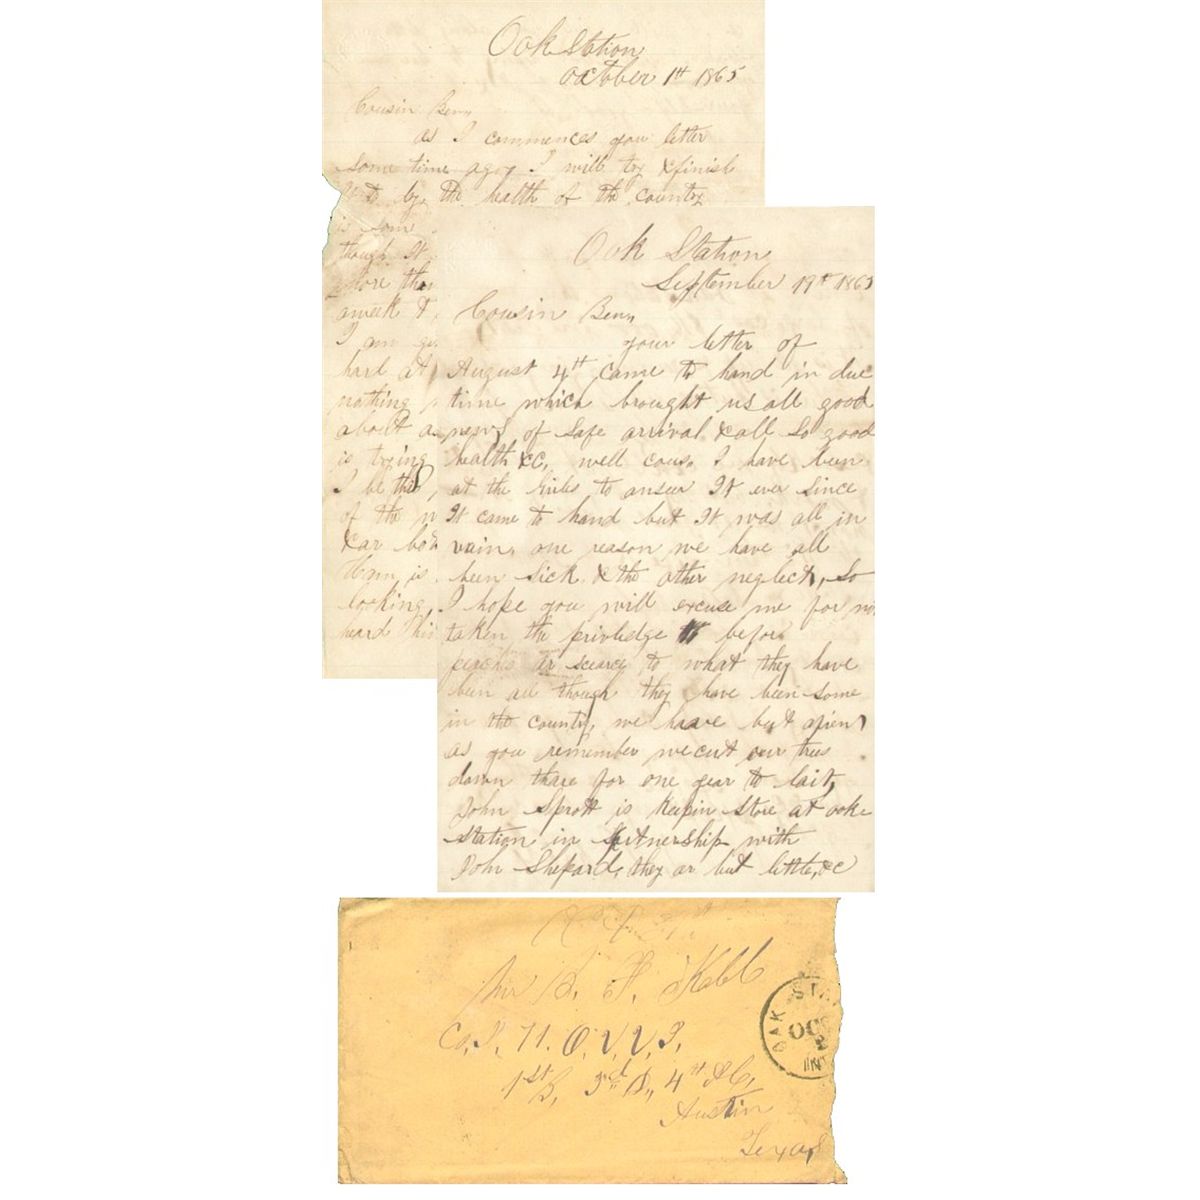 Oak Station
October 1st 1865
Cousin Ben,
as I commences you letter
some time ago, I will try & finish
by the health of the country
is some
though It
more tha
a week &
I am g
hard at
nothing
about a
is trying
I be the
of the
& ar
Ham, is
looking,
heard this
Oak Station
September 19th 1865
Cousin Ben,
your letter of
August 4th came to hand in due
time which brought us all good
news of safe arrival & all so good
health &C, well cous. I have been
at the to anser It ever since
It came to hand but It was all in
vain, one reason we have all
been sick & the other neglect, so
I hope you will excuse me for
taken the priviledge befor
ar scarce to what they have
been all though they have been some
in the country, we have but
as you remember we cut our trees
down thare for one year to last,
John Sprott is keepin store at oake
station in partnership with
John Shepard, they ar but little, &c
Mr B. F. Kebb
Co, I, 71. O, V, V, I,
1st B, 3rd D, 4th A C,
Austin
Texas
OAK STA
OC
2
IN